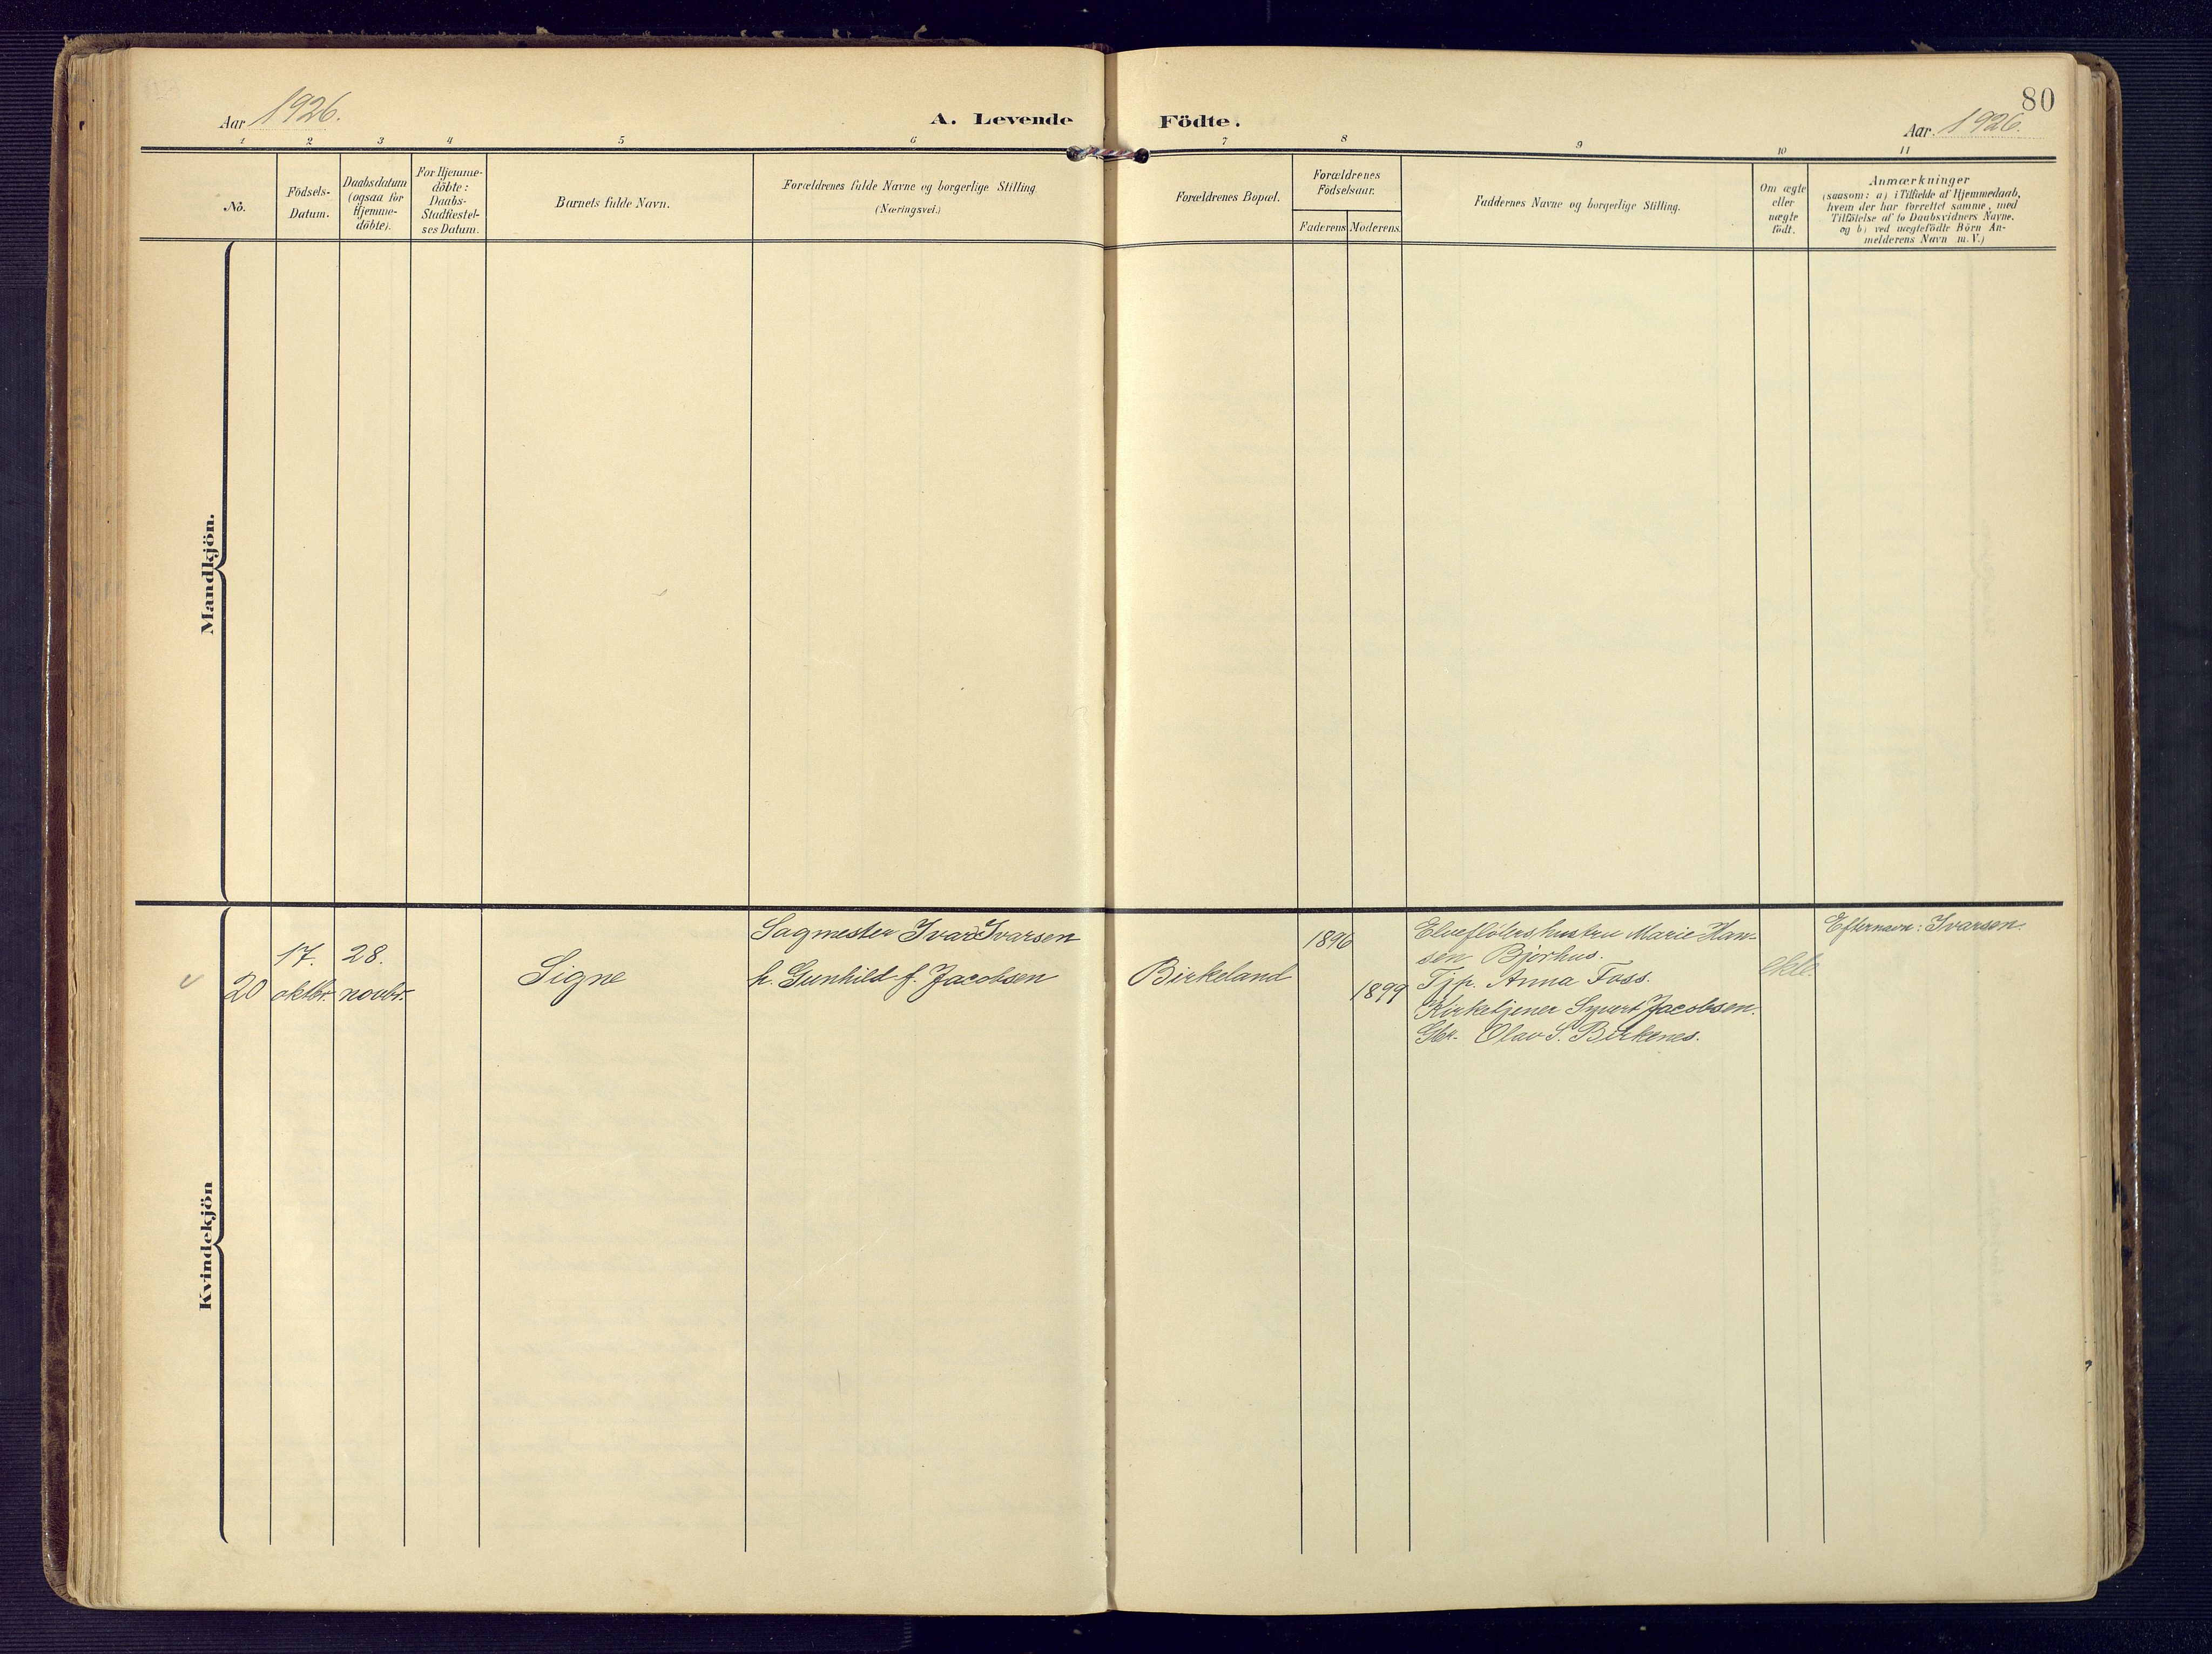 80
Aar 1926.
A. Levende Födte.
Aar. 1926.
1 2 3 4 5 6 7 8 9 10 11
No.
Födsels-
Datum.
Daabsdatum
(ogsaa for
Hjemme-
döbte).
For Hjemme-
döbte:
Daabs-
Stadfæstel-
ses Datum.
Barnets fulde Navn.
Forældrenes fulde Navne og borgerlige Stilling
(Næringsvei.)
Forældrenes Bopæl.
Forældrenes
Födselsaar.
Faderens Moderens.
Faddernes Navne og borgerlige Stilling.
Om ægte
eller
uægte
födt.
Anmærkninger
(saasom: a) i Tilfælde af Hjemmedaab,
hvem der har forrettet samme, med
Tilföielse af to Daabsvidners Navne.
og b) ved uægtefödte Börn An-
melderens Navn m.V.)
Mandkjön.
Kvindekjön
20
17.
oktbr.
28.
novbr.
Signe
Sagmester Ivar Ivarsen
h. Gunhild f. Jacobsen
Birkeland
1896
1899
Elvefløters hustru Marie Han-
sen Bjørhus.
Tjp. Anna Foss.
Kirketjener Syvert Jacobsen.
Gbr. Olav S. Birkenes.
ekte.
Efternavn: Ivarsen.